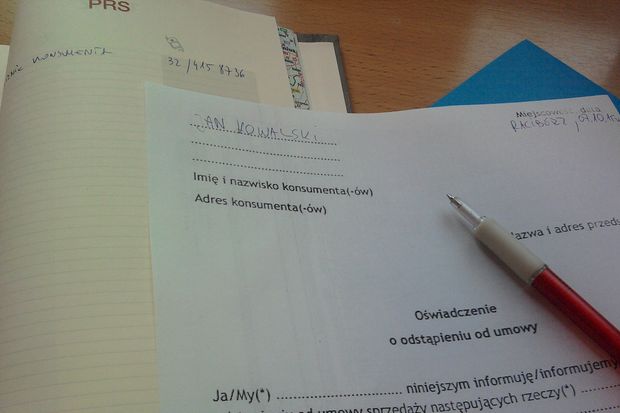 PRS
KONSUMENTA
32/415 8736
JAN KOWALSKI
Miejscowość data
RACIBÓRZ, 07.10.
Imię i nazwisko konsumenta(-ów)
Adres konsumenta(-ów)
azwa i adres przeds
Oświadczenie
o odstąpieniu od umowy
Ja/My(*) .................................... niniejszym informuję/informujemy
od umowy sprzedaży następujących rzeczy(*) ..........